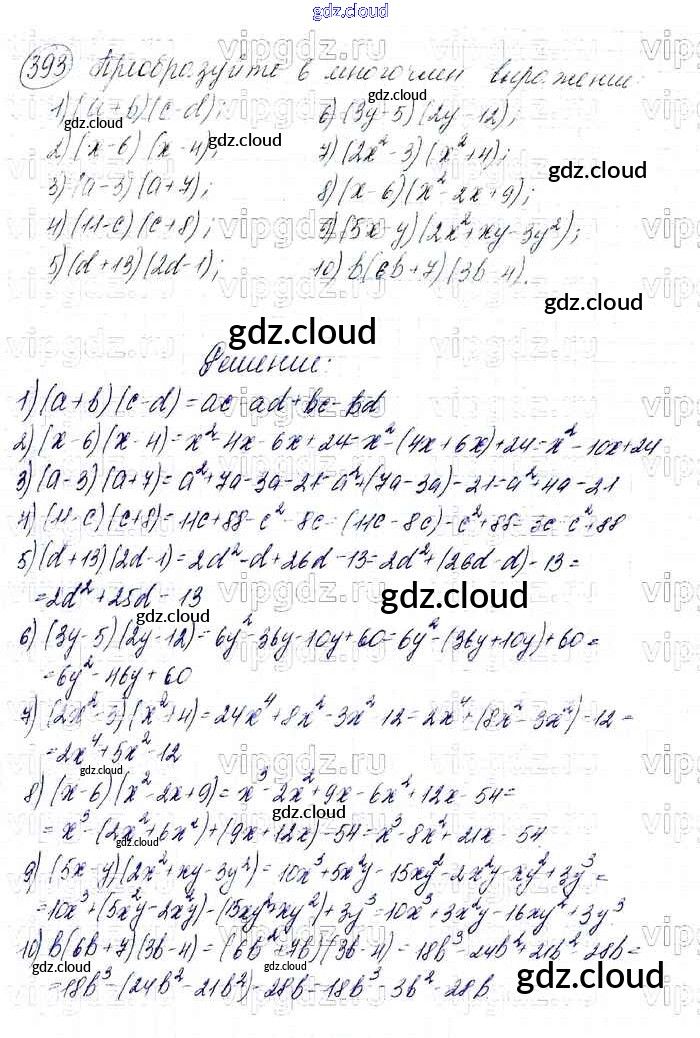 gdz.cloud
393 Преобразуйте в многочлен выражение:
1) (a+b)(c-d); 6) (3y-5)(2y-12);
2) (x-6)(x-4); 7) (2x²-3)(x²+4);
3) (a-3)(a+7); 8) (x-6)(x²-2x+9);
4) (11-c)(c+8); 9) (5x-y)(2x²+xy-3y²);
5) (d+13)(2d-1); 10) b(6b+7)(3b-4).
gdz.cloud
Решение:
1) (a+b)(c-d)=ac-ad+bc-bd
2) (x-6)(x-4)=x²-4x-6x+24=x²-(4x+6x)+24=x²-10x+24
3) (a-3)(a+7)=a²+7a-3a-21=a²+(7a-3a)-21=a²+4a-21
4) (11-c)(c+8)=11c+88-c²-8c=(11c-8c)-c²+88=3c-c²+88
5) (d+13)(2d-1)=2d²-d+26d-13=2d²+(26d-d)-13=
=2d²+25d-13
gdz.cloud
6) (3y-5)(2y-12)=6y²-36y-10y+60=6y²-(36y+10y)+60=
=6y²-46y+60
7) (2x²-3)(x²+4)=24x⁴+8x²-3x²-12=2x⁴+(8x²-3x²)-12=
=2x⁴+5x²-12
8) (x-6)(x²-2x+9)=x³-2x²+9x-6x²+12x-54=
=x³-(2x²+6x²)+(9x+12x)-54=x³-8x²+21x-54
9) (5x-y)(2x²+xy-3y²)=10x³+5x²y-15xy²-2x²y-xy²+3y³=
=10x³+(5x²y-2x²y)-(15xy²+xy²)+3y³=10x³+3x²y-16xy²+3y³
10) b(6b+7)(3b-4)=(6b²+7b)(3b-4)=18b³-24b²+21b²-28b=
=18b³-(24b²-21b²)-28b=18b³-3b²-28b
gdz.cloud